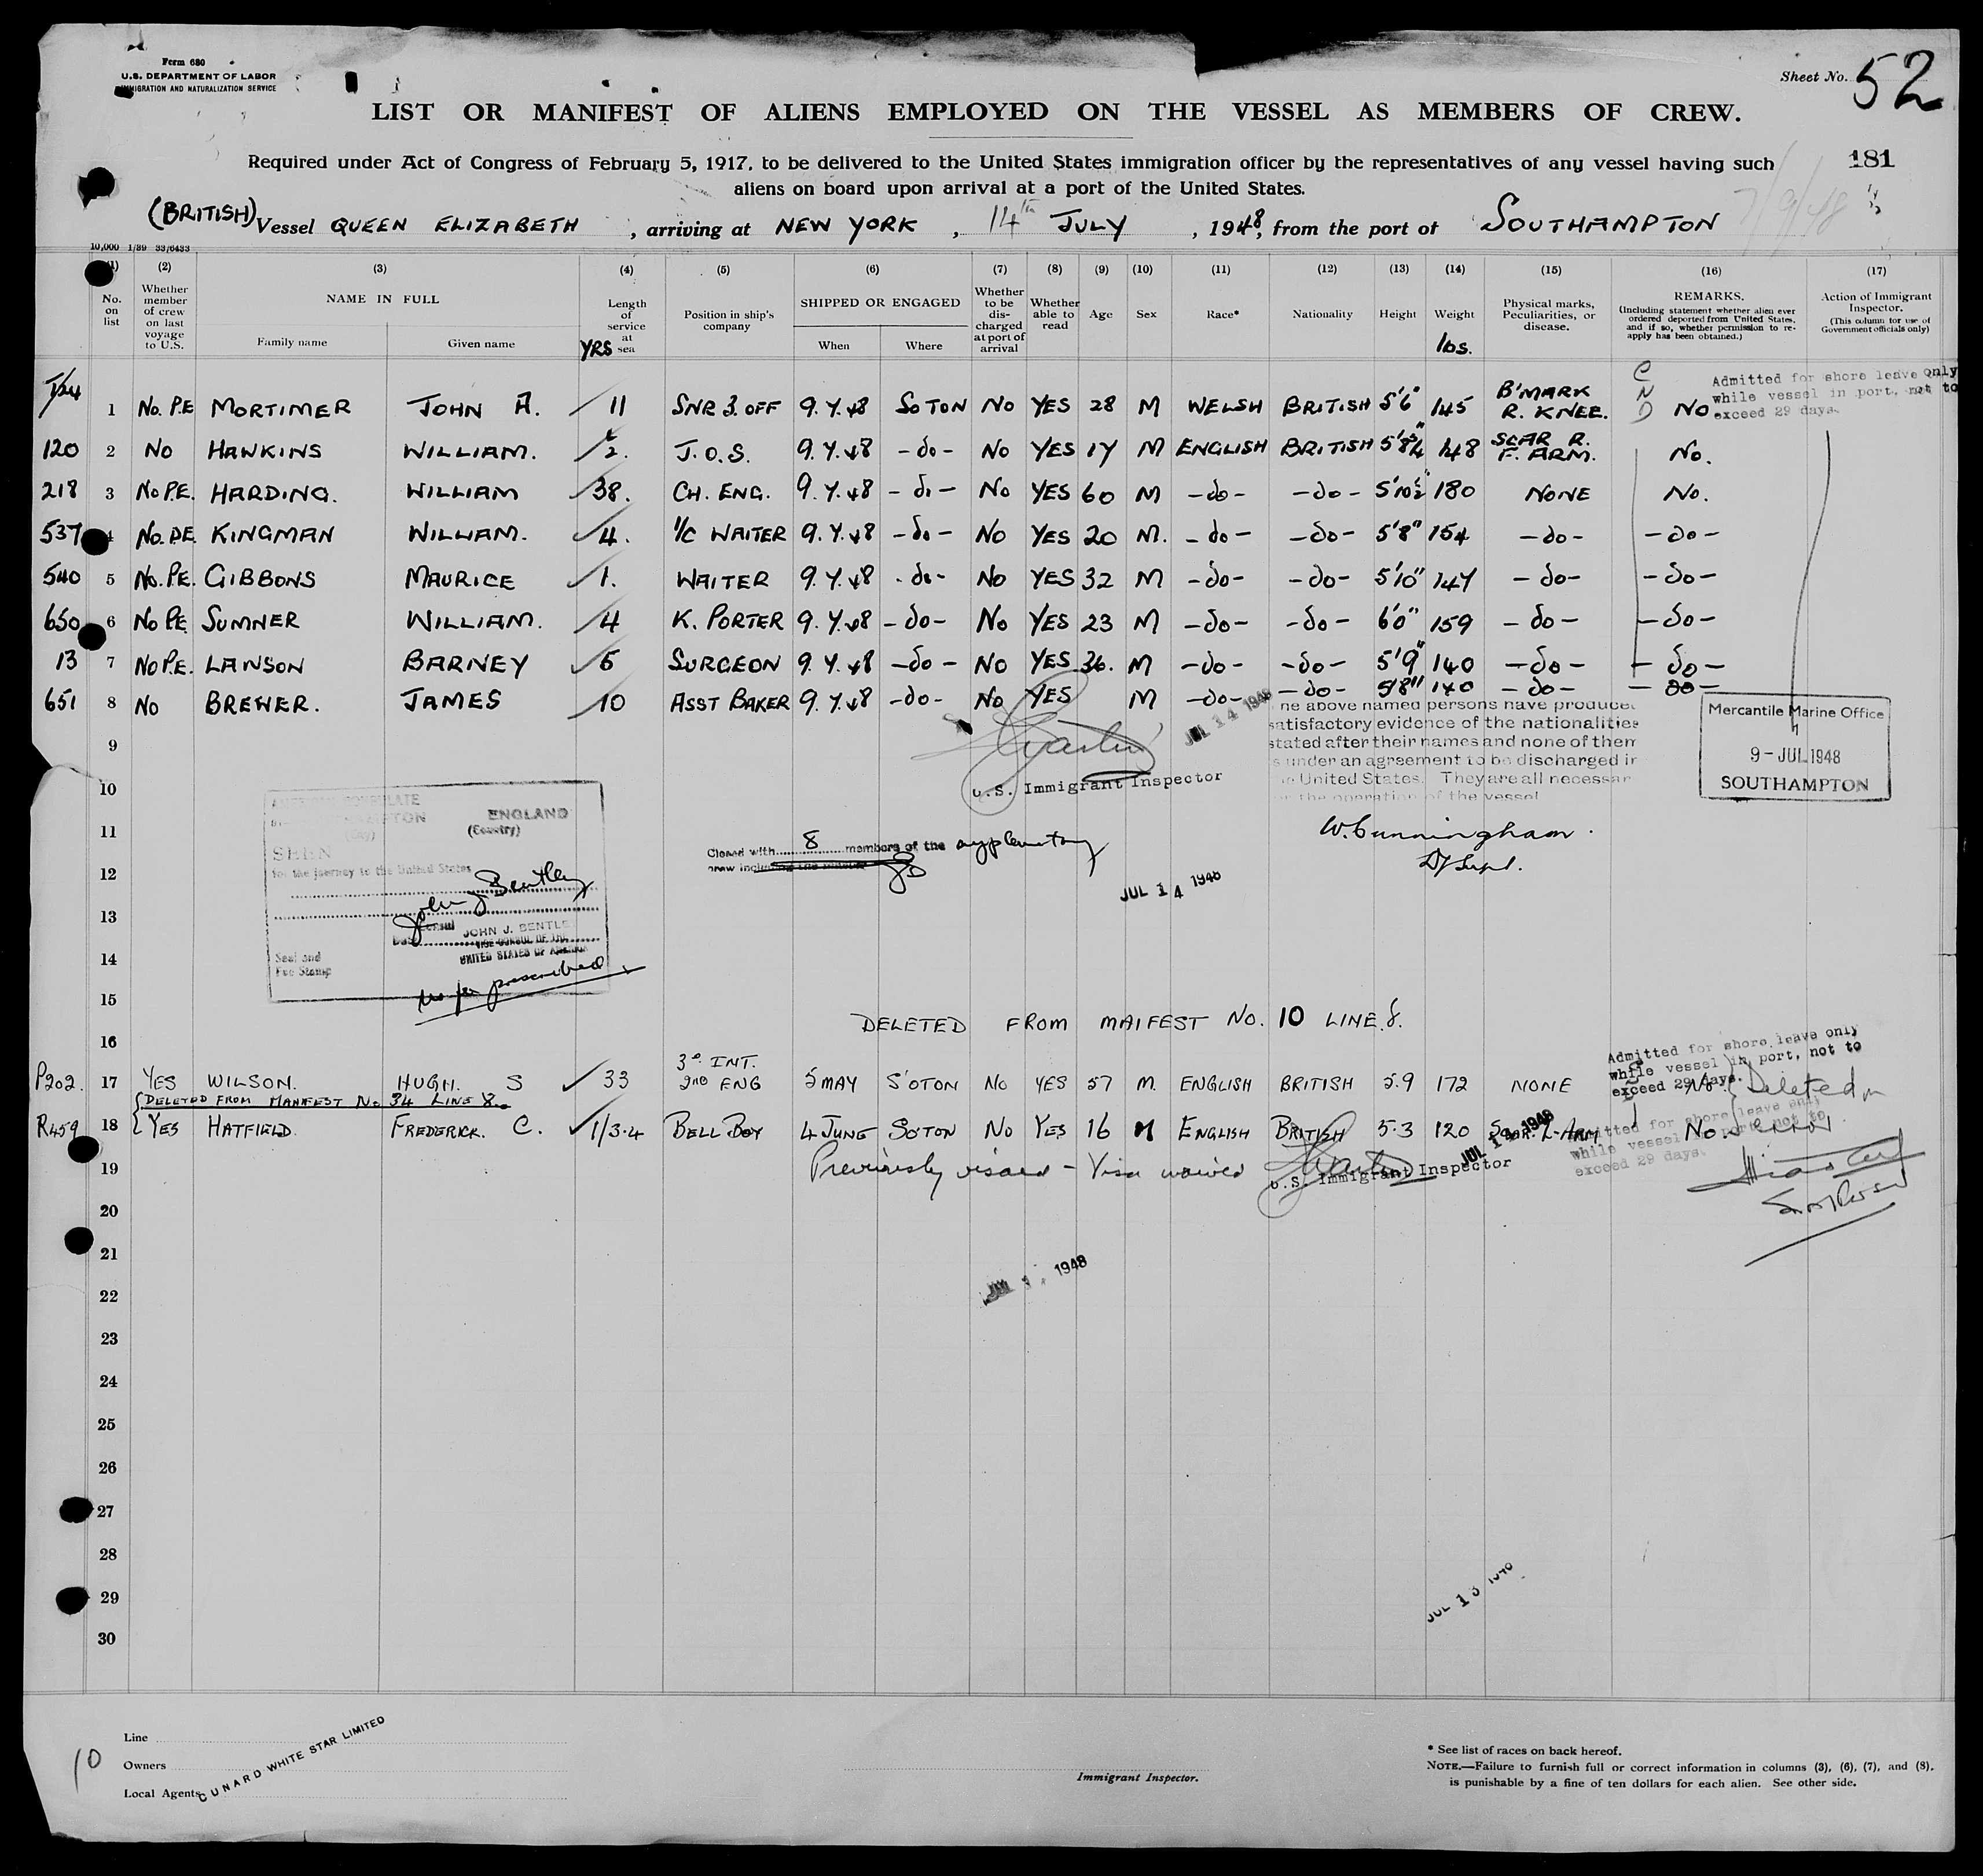 Form 680
U.S. DEPARTMENT OF LABOR
IMMIGRATION AND NATURALIZATION SERVICE
Sheet No. 52
LIST OR MANIFEST OF ALIENS EMPLOYED ON THE VESSEL AS MEMBERS OF CREW.
Required under Act of Congress of February 5, 1917, to be delivered to the United States immigration officer by the representatives of any vessel having such
aliens on board upon arrival at a port of the United States.
181
(BRITISH) Vessel QUEEN ELIZABETH, arriving at NEW YORK, 14th JULY, 1948, from the port of SOUTHAMPTON
7/9/48
10,000 1/39 33/6433
(1) (2) (3) (4) (5) (6) (7) (8) (9) (10) (11) (12) (13) (14) (15) (16) (17)
No. on list
Whether member of crew on last voyage to U.S.
NAME IN FULL
Family name
Given name
Length of service at sea
YRS
Position in ship's company
SHIPPED OR ENGAGED
When
Where
Whether to be discharged at port of arrival
Whether able to read
Age
Sex
Race*
Nationality
Height
Weight
lbs.
Physical marks, Peculiarities, or disease.
REMARKS.
(Including statement whether alien ever ordered deported from United States, and if so, whether permission to re-apply has been obtained.)
Action of Immigrant Inspector.
(This column for use of Government officials only)
1 No. P.E MORTIMER JOHN A. 11 SNR 3. OFF 9.7.48 SOTON NO YES 28 M WELSH BRITISH 5'6" 145 B'MARK R. KNEE. NO
Admitted for shore leave only
while vessel in port, not to
exceed 29 days.
120 2 NO HAWKINS WILLIAM. 2. J.O.S. 9.7.48 -do- NO YES 17 M ENGLISH BRITISH 5'8¾" 148 SCAR R. F. ARM. NO.
218 3 NO P.E. HARDING. WILLIAM 38. CH. ENG. 9.7.48 -do- NO YES 60 M -do- -do- 5'10½" 180 NONE NO.
537 4 NO. P.E. KINGMAN WILLIAM. 4. 1/C WAITER 9.7.48 -do- NO YES 20 M. -do- -do- 5'8" 154 -do- -do-
540 5 NO. P.E. GIBBONS MAURICE 1. WAITER 9.7.48 -do- NO YES 32 M -do- -do- 5'10" 147 -do- -do-
650 6 NO P.E. SUMNER WILLIAM. 4 K. PORTER 9.7.48 -do- NO YES 23 M -do- -do- 6'0" 159 -do- -do-
13 7 NO P.E. LANSON BARNEY 5 SURGEON 9.7.48 -do- NO YES 36. M -do- -do- 5'9" 140 -do- -do-
651 8 NO BREWER. JAMES 10 ASST BAKER 9.7.48 -do- NO YES M -do- -do- 5'8" 140 -do- -do-
JUL 14 1948
ne above named persons have produced
satisfactory evidence of the nationalities
stated after their names and none of them
s under an agreement to be discharged in
United States. They are all necessar
the operation of the vessel
Mercantile Marine Office
9-JUL 1948
SOUTHAMPTON
9
U.S. Immigrant Inspector
10
CONSULATE
ENGLAND
(Country)
11
W. Cunningham.
Dy Supt.
SEEN
for the journey to the United States
Closed with 8 members of the supplementary
crew including the
12
JUL 14 1948
John J Bentley
13
Consul JOHN J. BENTLE
VICE CONSUL OF THE
UNITED STATES OF AMERICA
14
Seal and
Fee Stamp
no fee prescribed
15
DELETED FROM MAIFEST NO. 10 LINE 8.
16
P202. 17 YES WILSON. HUGH. S 33 3rd INT. 2ND ENG 5 MAY S'OTON NO YES 57 M. ENGLISH BRITISH 5.9 172 NONE No.
Admitted for shore leave only
while vessel in port, not to
exceed 29 days.
Deleted in
DELETED FROM MANIFEST NO 34 LINE 8.
R459 18 YES HATFIELD. FREDERICK. C. 1/3.4 BELL BOY 4 JUNE SO'TON NO YES 16 M ENGLISH BRITISH 5.3 120 SCAR. L. ARM No.
Admitted for shore leave only
while vessel in port, not to
exceed 29 days.
19 Previously visaed - Visa waived
U.S. Immigrant Inspector
20
21
JUL 1948
22
23
24
25
26
27
28
29
JUL 13 1948
30
Line
Owners
Local Agents
CUNARD WHITE STAR LIMITED
10
Immigrant Inspector.
* See list of races on back hereof.
NOTE.—Failure to furnish full or correct information in columns (3), (6), (7), and (8),
is punishable by a fine of ten dollars for each alien. See other side.